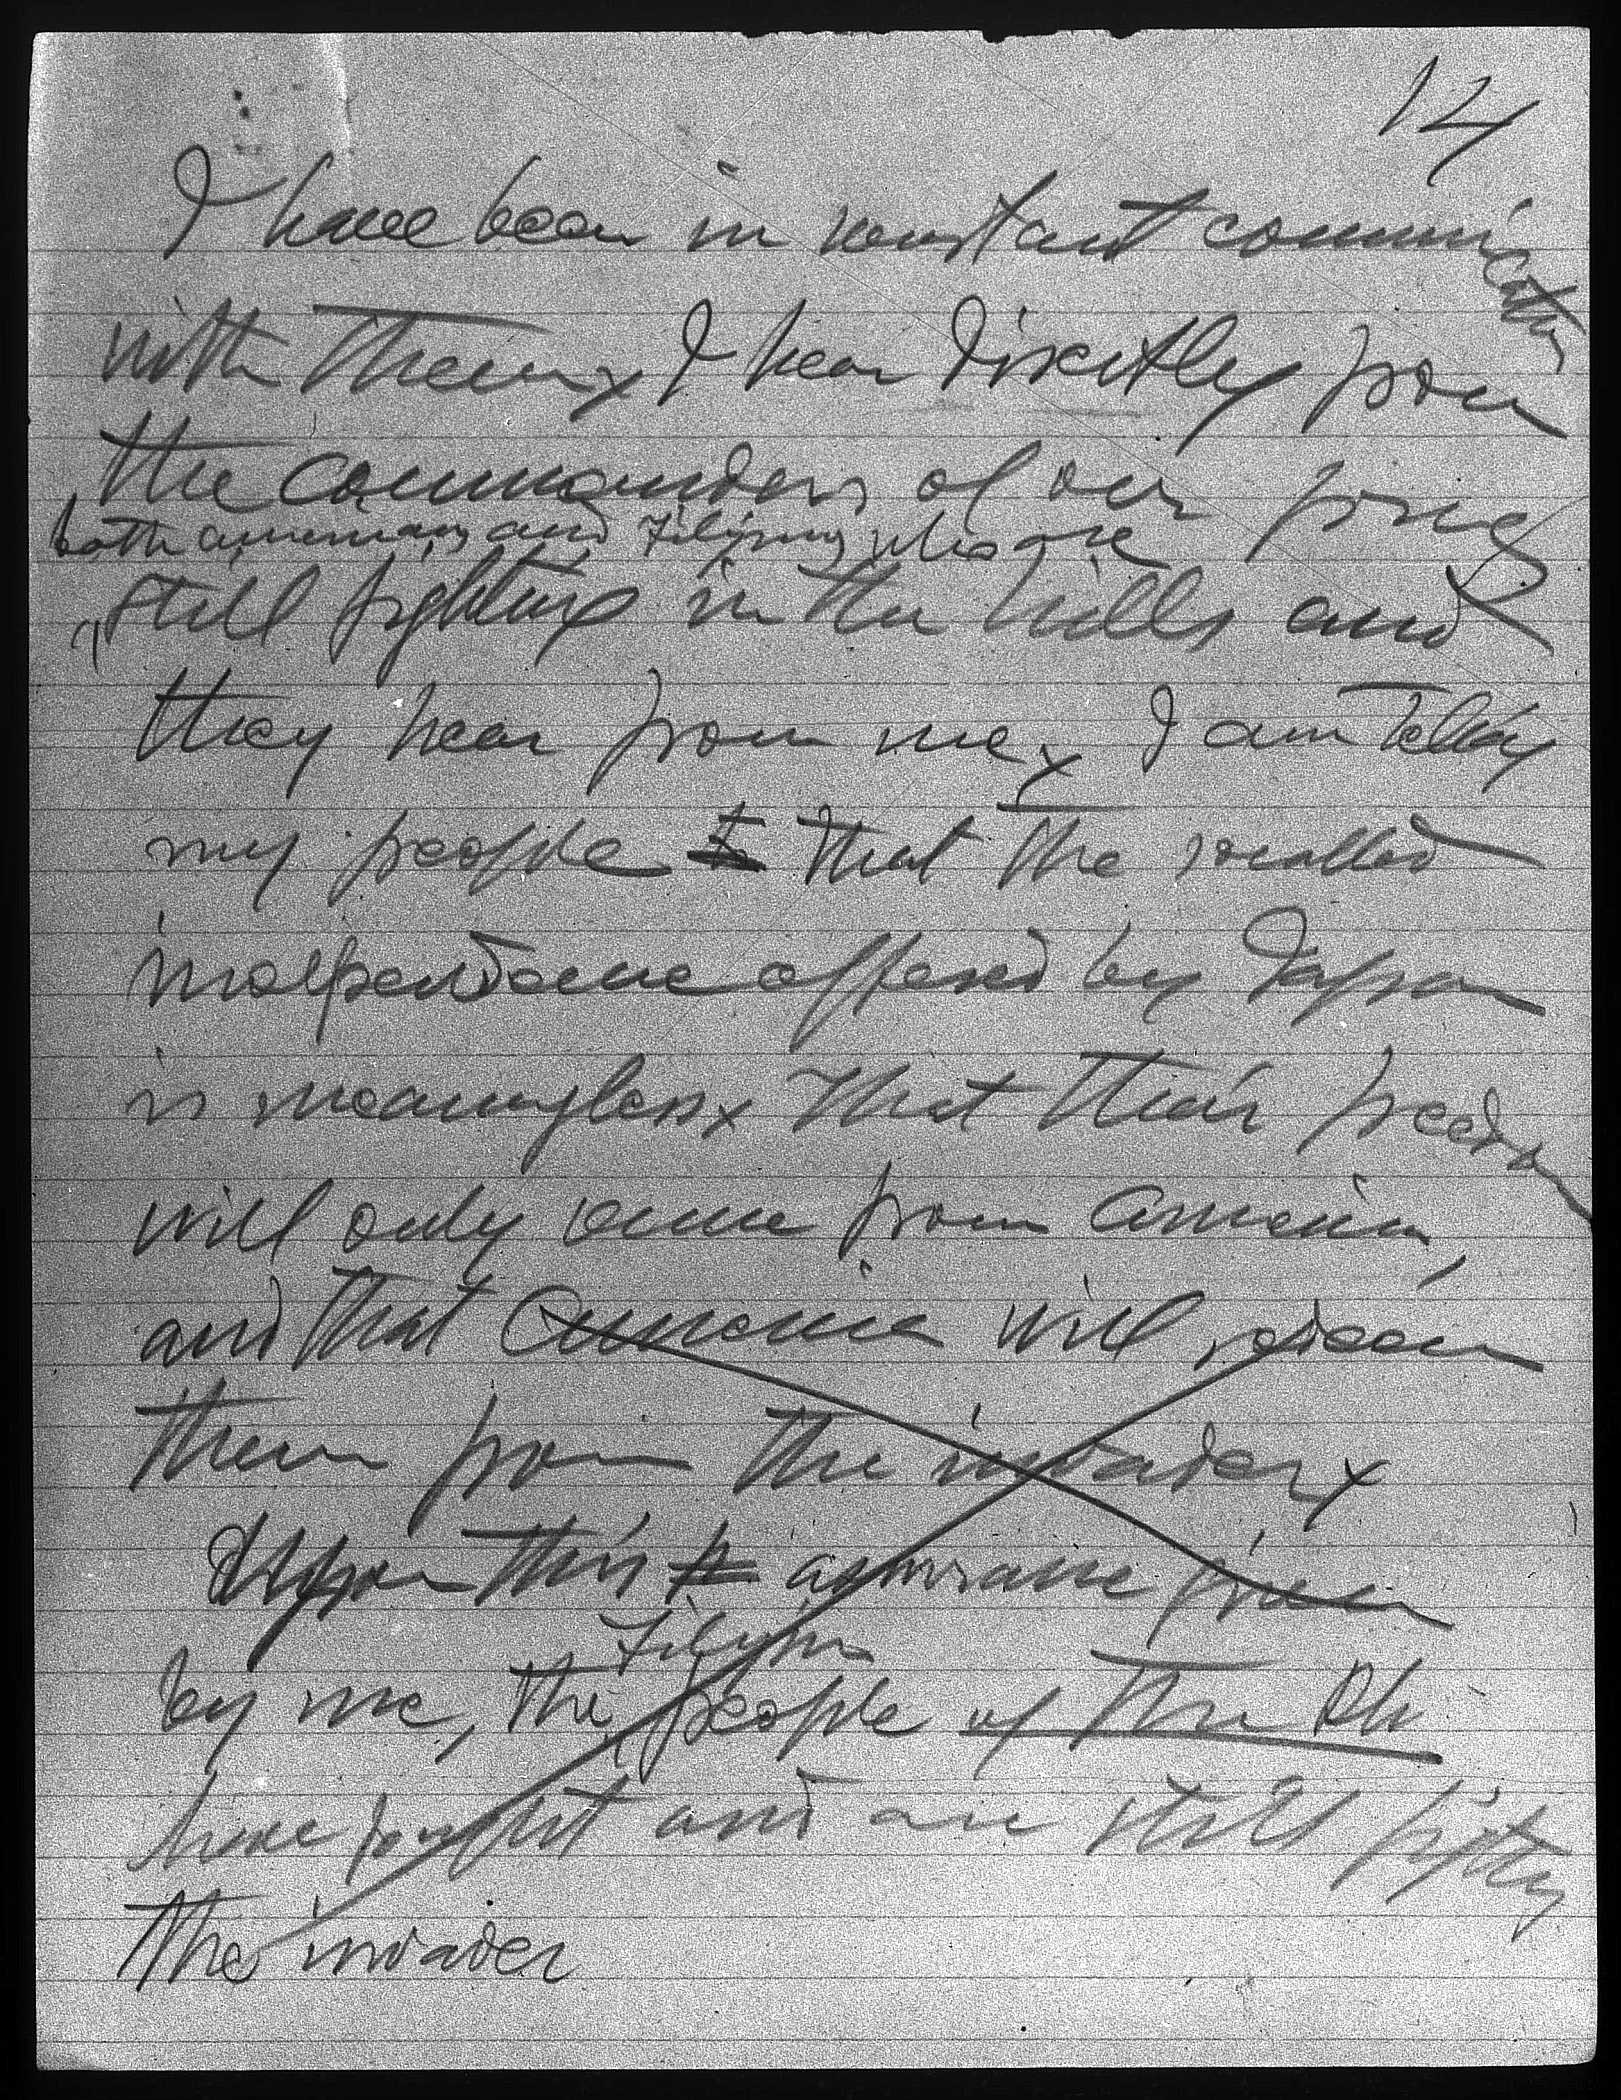 14
I have been in constant communication
with them x I hear directly from
the commanders of our forces
both americans and Filipinos who are
still fighting in the hills and
they hear from me x I am telling
my people to that the socalled
independence offered by Japan
is meaningless x that their freedom
will only come from America,
and that America will redeem
them from the invader x
Upon this assurance given
Filipino
by me, the people of the Ph
have fought and are still fighting
the invader